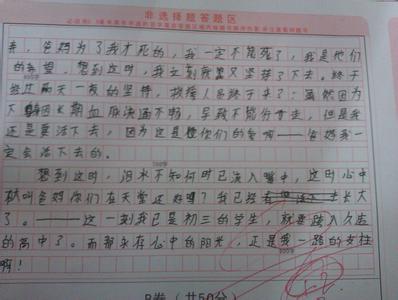 非选择题答题区
亲,爸妈为了我才死的,我一定不能死了,我是他们
的希望,想到这时,我立刻就又坚持了下去。终于
经过两天一夜的坚持,救援人员终于来了:虽然因为
下因长期血液流通不畅,导致不能行走,但是我
还是要活下去,因为这是你们的希——爸妈我一
定会活下去的。
想到这时,泪水不知何时已流入嘴中,这时心中
就叫爸妈你们在天堂还好吗?我已经长大
了。——这一刻我已是初三的学生,就要踏入久违
的高中了。而那朵在心中的阳光,正是我一路的支柱
啊!
B卷(共50分)